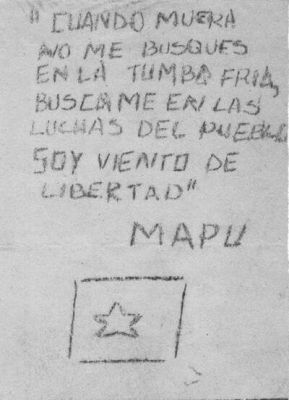 "CUANDO MUERA
NO ME BUSQUES
EN LA TUMBA FRIA,
BUSCAME EN LAS
LUCHAS DEL PUEBLO
SOY VIENTO DE
LIBERTAD"
MAPU